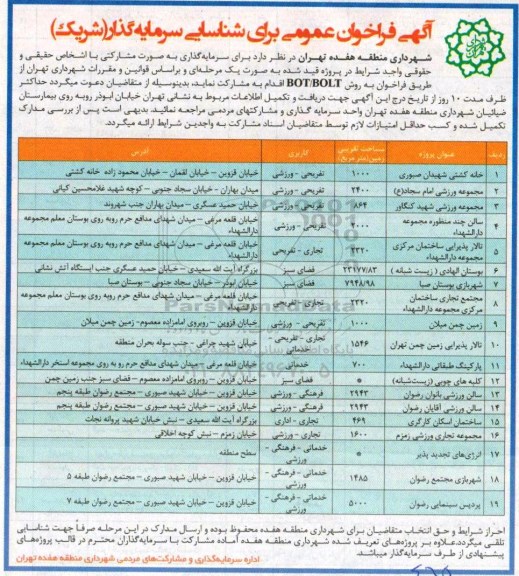 آگهی فراخوان عمومی برای شناسایی سرمایه‌گذار(شریک)
شهرداری منطقه هفده تهران در نظر دارد برای سرمایه‌گذاری به صورت مشارکتی با اشخاص حقیقی و
حقوقی واجد شرایط در پروژه قید شده به صورت یک مرحله‌ای و براساس قوانین و مقررات شهرداری تهران از
طریق فراخوان به روش BOT/BOLT اقدام به مشارکت نماید، بدینوسیله از متقاضیان دعوت میگردد حداکثر
ظرف مدت ۱۰ روز از تاریخ درج این آگهی جهت دریافت و تکمیل اطلاعات مربوط به نشانی تهران خیابان ابوذر روبه روی بیمارستان
ضیائیان شهرداری منطقه هفده تهران واحد سرمایه گذاری و مشارکتهای مردمی مراجعه نمائید بدیهی است پس از بررسی مدارک
تکمیل شده و کسب حداقل امتیازات لازم توسط متقاضیان اسناد مشارکت به واجدین شرایط ارائه میگردد.
ردیف عنوان پروژه مساحت تقریبی زمین(متر مربع) کاربری آدرس
۱ خانه کشتی شهیدان صبوری ۱۰۰۰ تفریحی - ورزشی خیابان قزوین – خیابان لقمان – خیابان محمود زاده خانه کشتی
۲ مجموعه ورزشی امام سجاد(ع) ۲۴۰۰ تفریحی - ورزشی میدان بهاران - خیابان سجاد جنوبی – کوچه شهید غلامحسین کیانی
۳ مجموعه ورزشی شهید کنگاور ۸۶۴ تفریحی - ورزشی خیابان حمید عسگری – میدان بهاران جنب شهروند
۴ سالن چند منظوره مجموعه دارالشهداء ۴۰۰۰ تفریحی - ورزشی خیابان قلعه مرغی – میدان شهدای مدافع حرم روبه روی بوستان معلم مجموعه دارالشهداء
۵ تالار پذیرایی ساختمان مرکزی مجموعه دارالشهداء ۲۳۲۰ تجاری - تفریحی خیابان قلعه مرغی – میدان شهدای مدافع حرم روبه روی بوستان معلم مجموعه دارالشهداء
۶ بوستان الهادی ( زیست شبانه ) ۲۳۱۷۷/۸۳ فضای سبز بزرگراه آیت الله سعیدی – خیابان حمید عسگری جنب ایستگاه آتش نشانی
۷ شهربازی بوستان صبا ۷۹۳۸/۹۸ فضای سبز خیابان ابوذر – خیابان سجاد جنوبی – بوستان صبا
۸ مجتمع تجاری ساختمان مرکزی مجموعه دارالشهداء ۲۳۲۰ تجاری - تفریحی خیابان قلعه مرغی – میدان شهدای مدافع حرم روبه روی بوستان معلم مجموعه دارالشهداء
۹ زمین چمن میلان ۱۰۰۰ تفریحی - ورزشی خیابان قزوین – روبروی امامزاده معصوم- زمین چمن میلان
۱۰ تالار پذیرایی زمین چمن تهران ۱۵۴۶ تجاری - تفریحی - خدماتی خیابان شهید چراغی - جنب سوله بحران منطقه
۱۱ پارکینگ طبقاتی دارالشهداء ۷۰۰ خدماتی خیابان قلعه مرغی – میدان شهدای مدافع حرم رو به روی مجموعه استخر دارالشهداء
۱۲ کلبه های چوبی (زیست‌شبانه) * فضای سبز خیابان قزوین – روبروی امامزاده معصوم – فضای سبز جنب زمین چمن
۱۳ سالن ورزشی بانوان رضوان ۲۹۴۳ فرهنگی - ورزشی خیابان قزوین – خیابان شهید صبوری – مجتمع رضوان طبقه پنجم
۱۴ سالن ورزشی آقایان رضوان ۲۹۴۳ فرهنگی - ورزشی خیابان قزوین – خیابان شهید صبوری – مجتمع رضوان طبقه پنجم
۱۵ ساختمان اسکان کارگری ۴۶۹ تجاری - اداری بزرگراه آیت الله سعیدی – نبش خیابان شهید پروانه نجات
۱۶ مجموعه تجاری ورزشی زمزم ۱۶۰۰ تجاری - ورزشی خیابان زمزم – نبش کوچه اخلاقی
۱۷ انرژی‌های تجدید پذیر * خدماتی - فرهنگی - ورزشی سطح منطقه
۱۸ شهربازی مجتمع رضوان ۱۴۸۵ خدماتی - فرهنگی - ورزشی خیابان قزوین – خیابان شهید صبوری – مجتمع رضوان طبقه ۵
۱۹ پردیس سینمایی رضوان ۵۰۰۰ خدماتی - فرهنگی - ورزشی خیابان قزوین – خیابان شهید صبوری – مجتمع رضوان طبقه ۷
احراز شرایط و حق انتخاب متقاضیان برای شهرداری منطقه هفده محفوظ بوده و ارسال مدارک در این مرحله صرفاً جهت شناسایی
تلقی میگردد.علاوه بر پروژه‌های تعریف شده شهرداری منطقه هفده آماده مشارکت با سرمایه‌گذاران محترم در قالب پروژه‌های
پیشنهادی از طرف سرمایه‌گذار میباشد.
اداره سرمایه‌گذاری و مشارکت‌های مردمی شهرداری منطقه هفده تهران